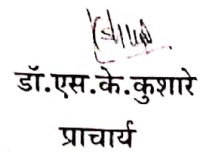 डॉ.एस.के.कुशारे
प्राचार्य